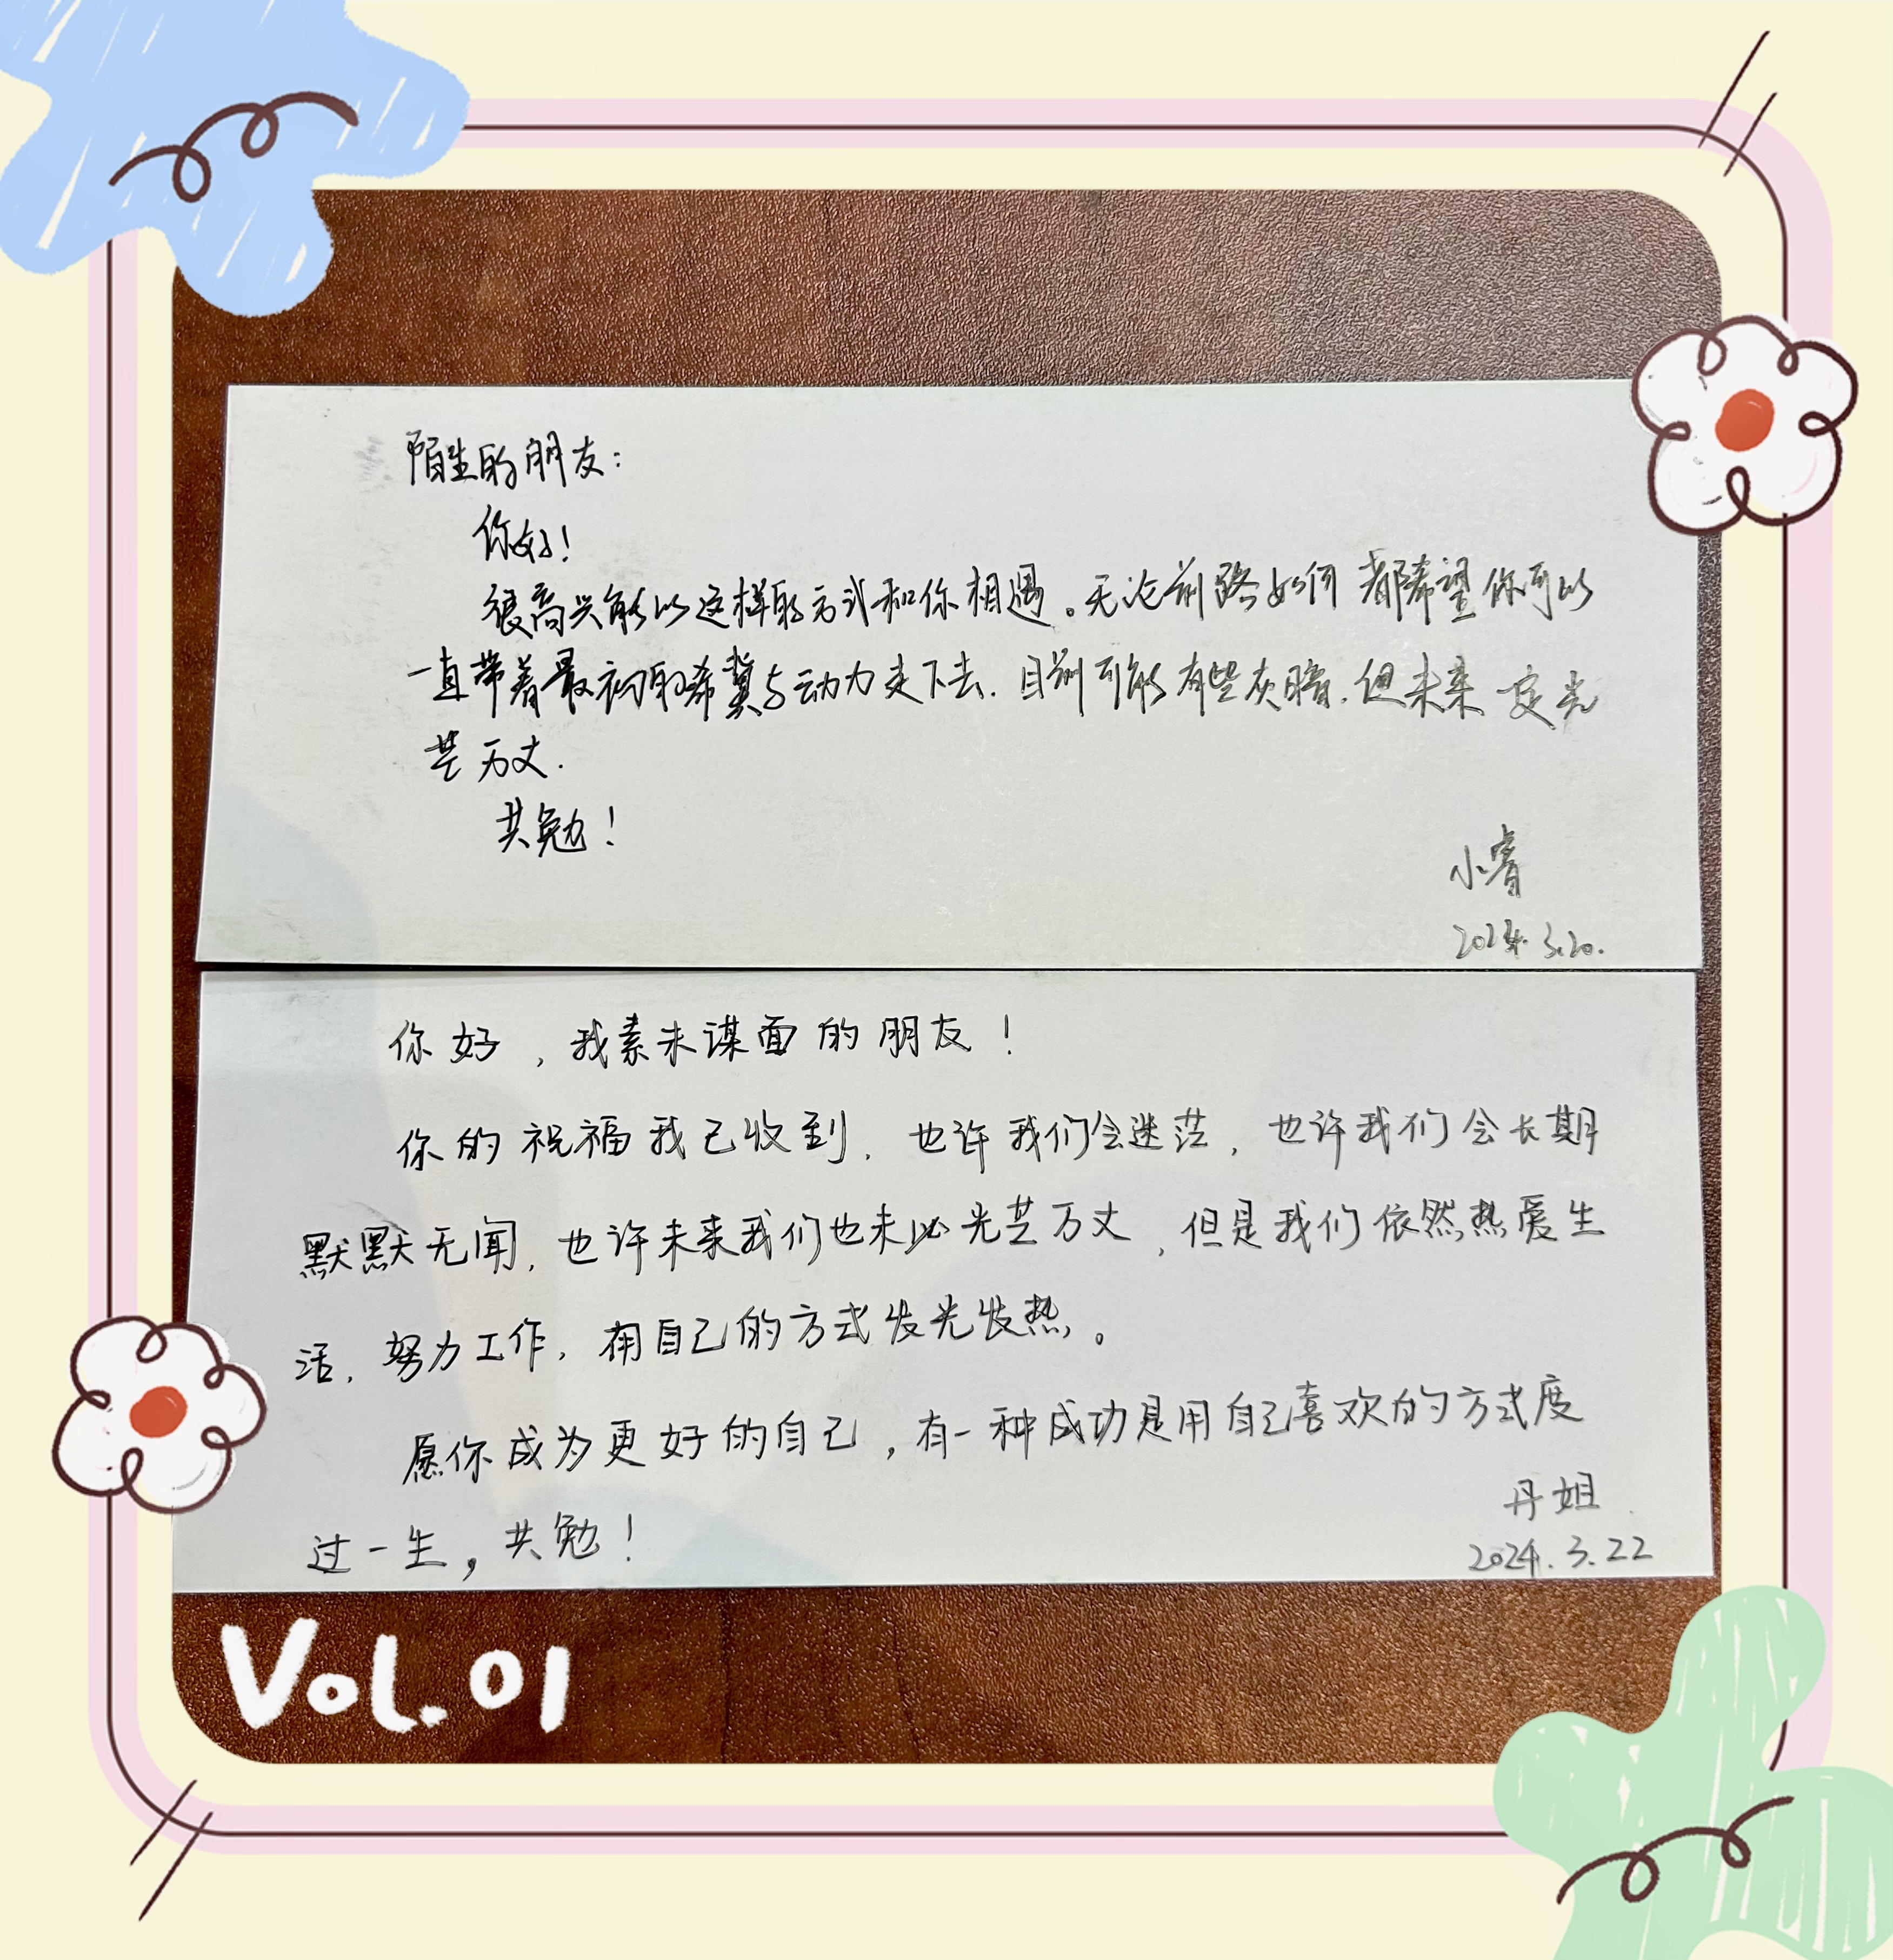 陌生的朋友：
你好！
很高兴能以这样的方式和你相遇。无论前路如何 都希望你可以
一直带着最初的希冀与动力走下去. 目前可能有些灰暗. 但未来一定光
芒万丈.
共勉！
小睿
2024.3.20.
你好，我素未谋面的朋友！
你的祝福我已收到，也许我们会迷茫，也许我们会长期
默默无闻，也许未来我们也未必光芒万丈，但是我们依然热爱生
活，努力工作，用自己的方式发光发热。
愿你成为更好的自己，有一种成功是用自己喜欢的方式度
过一生，共勉！
丹姐
2024.3.22
Vol.01